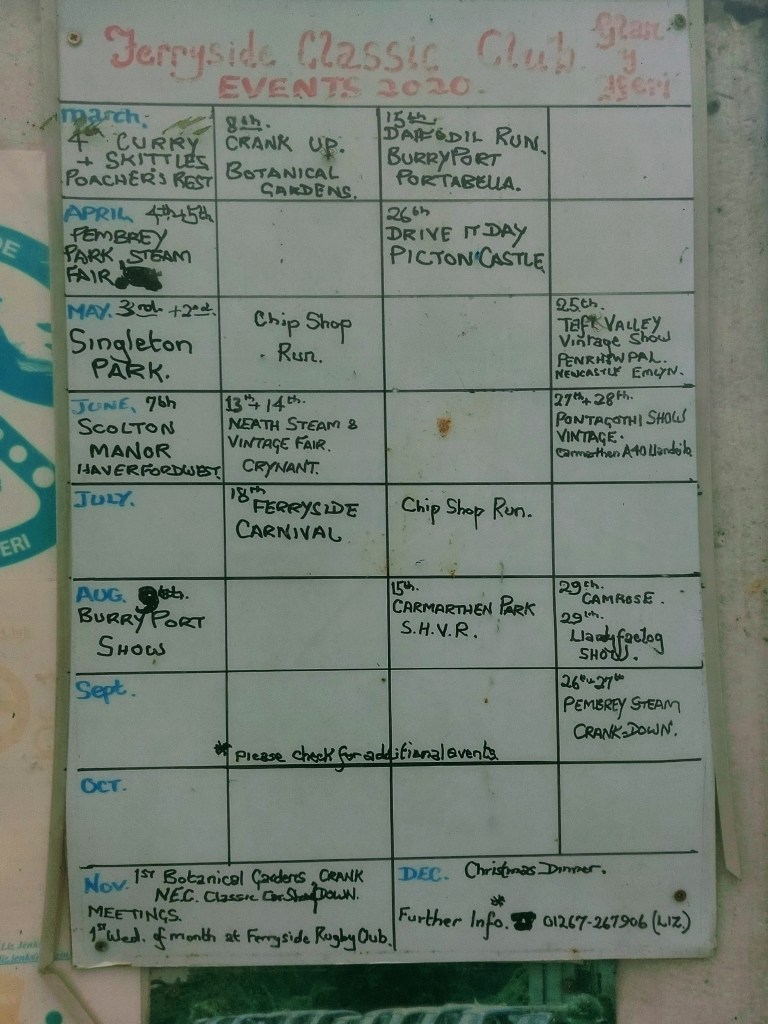 Ferryside Classic Club
Glan
y
Fferi
EVENTS 2020.
March.
4th CURRY
+ SKITTLES
POACHER'S REST
8th.
CRANK UP.
BOTANICAL
GARDENS.
15th
DAFFODIL RUN.
BURRYPORT
PORTABELLA.
APRIL 4th+5th
PEMBREY
PARK STEAM
FAIR
26th
DRIVE IT DAY
PICTON CASTLE
MAY. 3rd +2nd.
Singleton
PARK.
Chip Shop
Run.
25th.
Taff VALLEY
Vintage Show
PENRHIWPAL.
NEWCASTLE EMLYN.
JUNE, 7th
SCOLTON
MANOR
HAVERFORDWEST.
13th+14th.
NEATH STEAM &
VINTAGE FAIR.
CRYNANT.
27th+28th.
PONTAGOTHI SHOW
VINTAGE.
Carmarthen A40 Llandeilo
JULY.
18th
FERRYSIDE
CARNIVAL
Chip Shop Run.
AUG.
BURRYPORT
SHOW
15th.
CARMARTHEN PARK
S.H.V.R.
29th.
CAMROSE.
29th.
Llandyfaelog
SHOW.
Sept.
26th+27th
PEMBREY STEAM
CRANK-DOWN.
* Please check for additional events
OCT.
Nov. 1ST Botanical Gardens, CRANK
N.E.C. Classic Car Show DOWN.
MEETINGS.
1st Wed. of month at Ferryside Rugby Club.
DEC. Christmas Dinner.
*
Further Info. ☎ 01267-267906 (LIZ.)
ERI